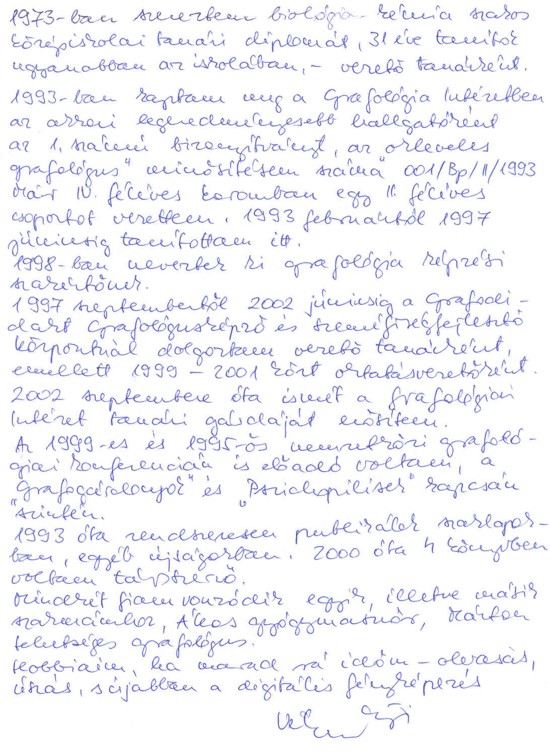 1973-ban szereztem biológia-kémia szakos
középiskolai tanári diplomát, 31 éve tanítok
ugyanabban az iskolában, - vezető tanárként.
1993-ban kaptam meg a Grafológia Intézetben
az akkori legeredményesebb hallgatóként
az 1. számú bizonyítványt, az okleveles
grafológus" minősítésem száma 001/Bp/II/1993
Már IV. féléves koromban egy II. féléves
csoportot vezettem. 1993 februártól 1997
júniusig tanítottam itt.
1998-ban neveztek ki grafológia képzési
szakértőnek.
1997 szeptembertől 2002 júniusig a Grafodi-
dakt Grafológusképző és személyiségfejlesztő
központnál dolgoztam vezető tanárként,
emellett 1999 - 2001 közt oktatásvezetőként.
2002 szeptembere óta ismét a Grafológiai
Intézet tanári gárdáját erősítem.
Az 1999-es és 1995-ös nemzetközi grafoló-
giai konferencián is előadó voltam, a
"Grafogárdonyok" és "Pszichopiliszek" kapcsán
szintén.
1993 óta rendszeresen publikálok szaklapok-
ban, egyéb újságokban. 2000 óta 4 könyvben
voltam társszerző.
Mindkét fiam vonzódik egyik, illetve másik
szakmámhoz, Ákos gyógymasszőr, Márton
tehetséges grafológus.
Hobbiaim, ha marad rá időm - olvasás,
úszás, s újabban a digitális fényképezés